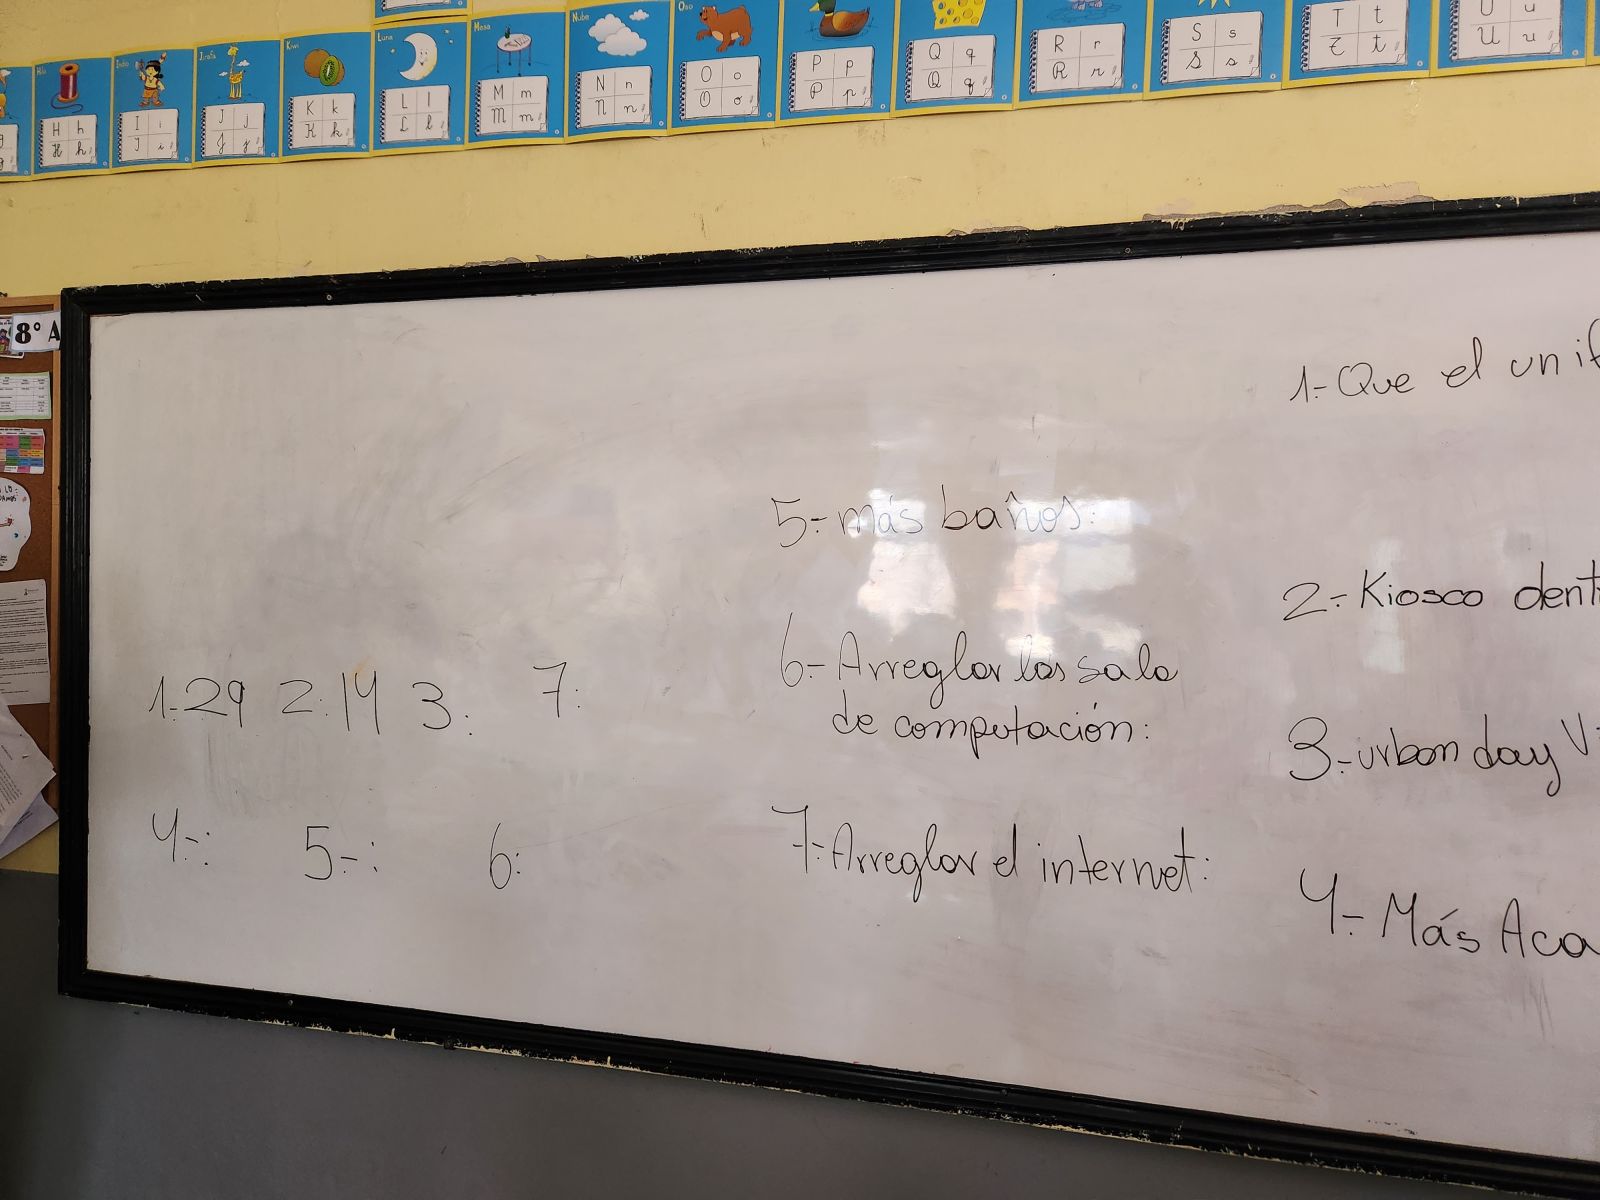 Hilo
Indio
Jirafa
Kiwi
Luna
Mesa
Nube
Oso
H h
H h
I i
I i
J j
J j
K k
K k
L l
L l
M m
M m
N n
N n
O o
O o
P p
P p
Q q
Q q
R r
R r
S s
S s
T t
T t
U u
U u
8° A
1.- Que el unif
5.- más baños:
2.- Kiosco dent
6.- Arreglar las sala
de computación:
1.- 29 2: 14 3: 7:
3.- urban day V
4.-: 5-: 6:
7.- Arreglar el internet:
4.- Más Aca